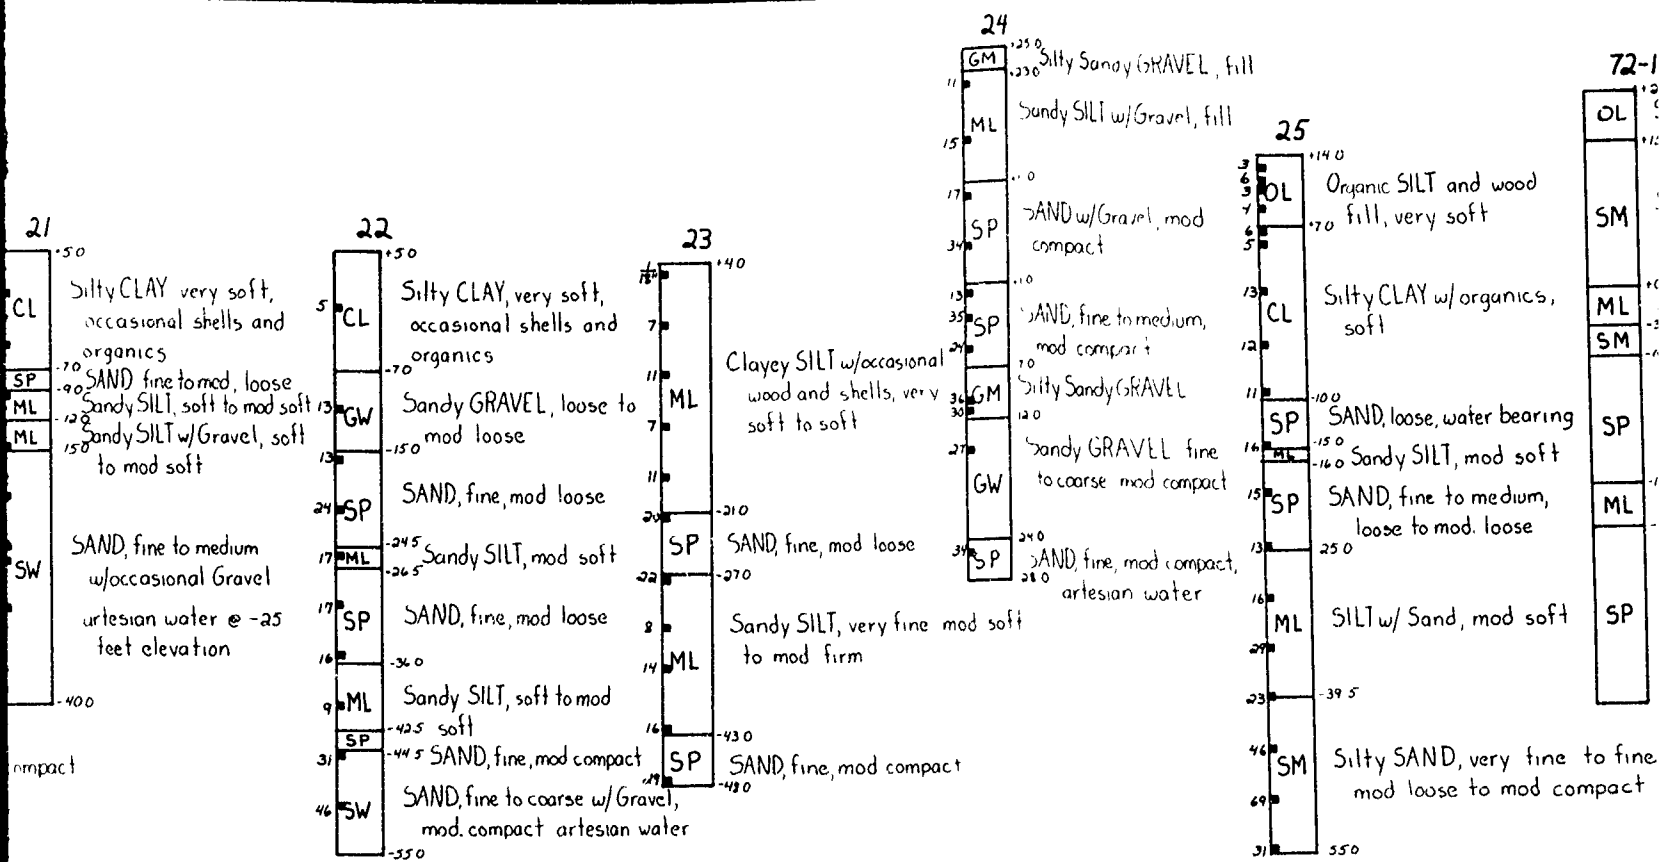 21
+50
CL
Silty CLAY very soft,
occasional shells and
organics
-70
SP
SAND fine to med, loose
-90
ML
Sandy SILT, soft to mod soft
-120
ML
Sandy SILT w/Gravel, soft
to mod soft
150
SW
SAND, fine to medium
w/occasional Gravel
artesian water @ -25
feet elevation
-400
ompact
22
+50
5
CL
Silty CLAY, very soft,
occasional shells and
organics
-70
13
GW
Sandy GRAVEL, loose to
mod loose
-150
13
24
SP
SAND, fine, mod loose
-245
17
ML
Sandy SILT, mod soft
-265
17
SP
SAND, fine, mod loose
16
-360
9
ML
Sandy SILT, soft to mod
soft
-425
SP
-445
SAND, fine, mod compact
31
46
SW
SAND, fine to coarse w/Gravel,
mod. compact artesian water
-550
23
+40
7
11
ML
Clayey SILT w/occasional
wood and shells, very
soft to soft
7
11
-210
20
SP
SAND, fine, mod loose
-270
22
8
Sandy SILT, very fine mod soft
to mod firm
14
ML
16
-430
SP
SAND, fine, mod compact
-480
24
+250
GM
Silty Sandy GRAVEL, fill
230
11
ML
Sandy SILT w/Gravel, fill
15
17
SP
SAND w/Gravel, mod
compact
34
13
35
SP
SAND, fine to medium,
mod compact
24
70
GM
Silty Sandy GRAVEL
36
30
120
27
GW
Sandy GRAVEL fine
to coarse mod compact
240
34
SP
SAND, fine, mod compact,
artesian water
280
25
+140
3
6
3
OL
Organic SILT and wood
fill, very soft
4
+70
6
5
13
CL
Silty CLAY w/organics,
soft
12
11
-100
SP
SAND, loose, water bearing
16
-150
ML
-160
Sandy SILT, mod soft
15
SP
SAND, fine to medium,
loose to mod. loose
13
250
16
ML
SILT w/ Sand, mod soft
29
23
-395
46
SM
Silty SAND, very fine to fine
mod loose to mod compact
69
31
550
72-1
OL
SM
ML
SM
SP
ML
SP